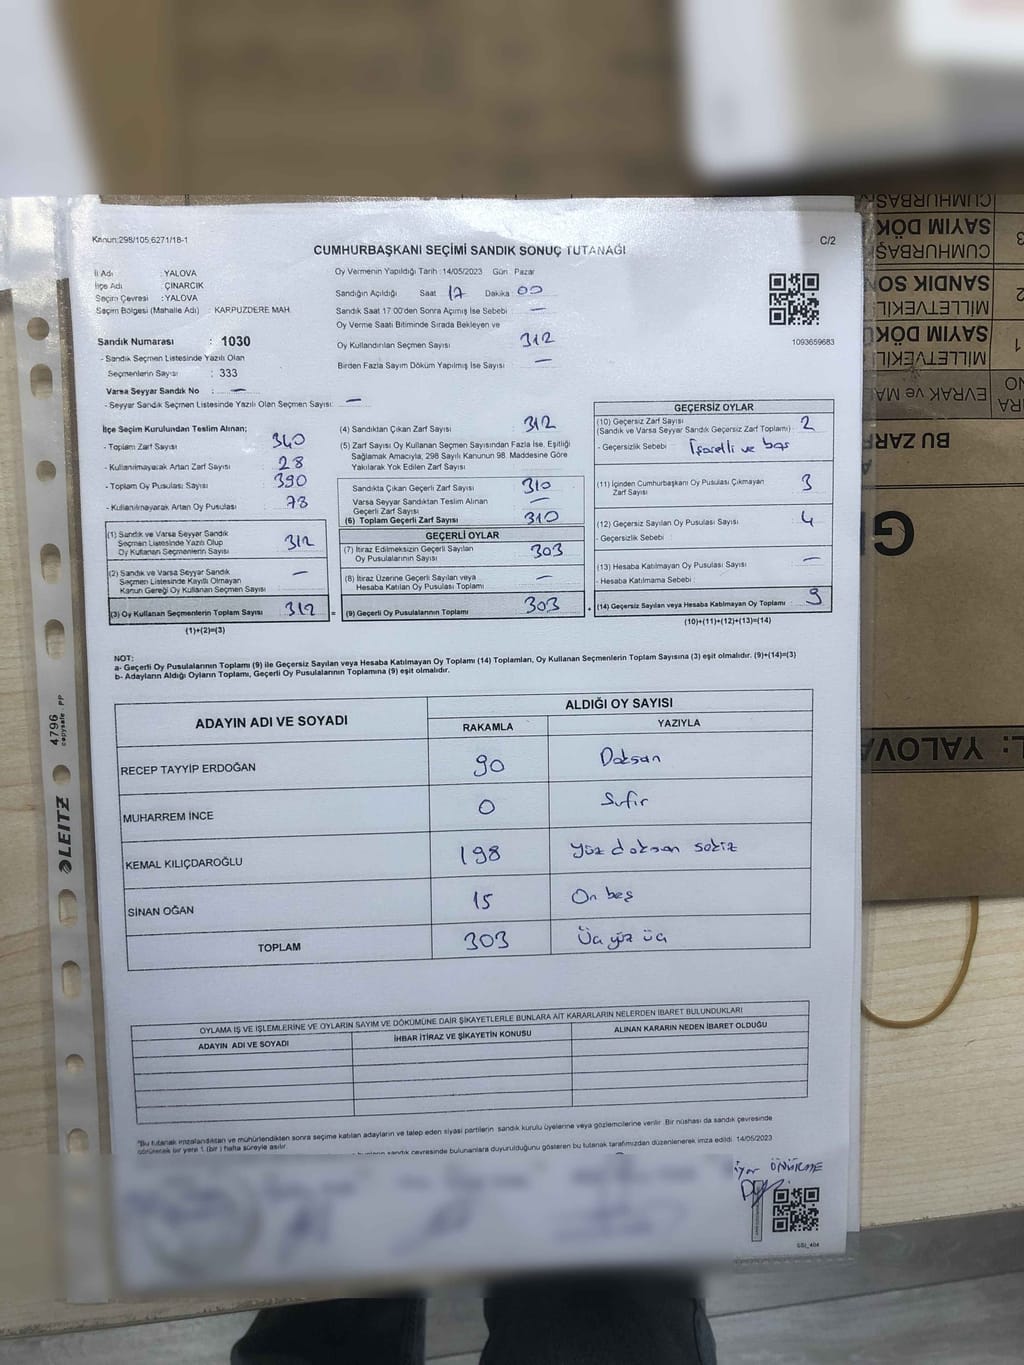 Kanun:298/105;6271/18-1
C/2
CUMHURBAŞKANI SEÇİMİ SANDIK SONUÇ TUTANAĞI
İl Adı : YALOVA
İlçe Adı : ÇINARCIK
Seçim Çevresi : YALOVA
Seçim Bölgesi (Mahalle Adı) : KARPUZDERE MAH.
Sandık Numarası : 1030
- Sandık Seçmen Listesinde Yazılı Olan
Seçmenlerin Sayısı : 333
Varsa Seyyar Sandık No : —
- Seyyar Sandık Seçmen Listesinde Yazılı Olan Seçmen Sayısı: —
Oy Vermenin Yapıldığı Tarih :14/05/2023 Gün: Pazar
Sandığın Açıldığı Saat 17 Dakika 00
Sandık Saat 17:00'den Sonra Açılmış İse Sebebi —
Oy Verme Saati Bitiminde Sırada Bekleyen ve
Oy Kullandırılan Seçmen Sayısı 312
Birden Fazla Sayım Döküm Yapılmış İse Sayısı —
1093659683
İlçe Seçim Kurulundan Teslim Alınan;
- Toplam Zarf Sayısı 340
- Kullanılmayacak Artan Zarf Sayısı 28
- Toplam Oy Pusulası Sayısı 390
- Kullanılmayarak Artan Oy Pusulası 78
(1) Sandık ve Varsa Seyyar Sandık
Seçmen Listesinde Yazılı Olup
Oy Kullanan Seçmenlerin Sayısı 312
(2) Sandık ve Varsa Seyyar Sandık
Seçmen Listesinde Kayıtlı Olmayan
Kanun Gereği Oy Kullanan Seçmen Sayısı —
(3) Oy Kullanan Seçmenlerin Toplam Sayısı 312 =
(1)+(2)=(3)
(4) Sandıktan Çıkan Zarf Sayısı 312
(5) Zarf Sayısı Oy Kullanan Seçmen Sayısından Fazla İse, Eşitliği
Sağlamak Amacıyla, 298 Sayılı Kanunun 98. Maddesine Göre
Yakılarak Yok Edilen Zarf Sayısı
Sandıkta Çıkan Geçerli Zarf Sayısı 310
Varsa Seyyar Sandıktan Teslim Alınan
Geçerli Zarf Sayısı —
(6) Toplam Geçerli Zarf Sayısı 310
GEÇERLİ OYLAR
(7) İtiraz Edilmeksizin Geçerli Sayılan
Oy Pusulalarının Sayısı 303
(8) İtiraz Üzerine Geçerli Sayılan veya
Hesaba Katılan Oy Pusulası Toplamı —
(9) Geçerli Oy Pusulalarının Toplamı 303 +
GEÇERSİZ OYLAR
(10) Geçersiz Zarf Sayısı
(Sandık ve Varsa Seyyar Sandık Geçersiz Zarf Toplamı) 2
- Geçersizlik Sebebi : İşaretli ve boş
(11) İçinden Cumhurbaşkanı Oy Pusulası Çıkmayan
Zarf Sayısı 3
(12) Geçersiz Sayılan Oy Pusulası Sayısı 4
- Geçersizlik Sebebi :
(13) Hesaba Katılmayan Oy Pusulası Sayısı —
- Hesaba Katılmama Sebebi :
(14) Geçersiz Sayılan veya Hesaba Katılmayan Oy Toplamı 9
(10)+(11)+(12)+(13)=(14)
NOT:
a- Geçerli Oy Pusulalarının Toplamı (9) ile Geçersiz Sayılan veya Hesaba Katılmayan Oy Toplamı (14) Toplamları, Oy Kullanan Seçmenlerin Toplam Sayısına (3) eşit olmalıdır. (9)+(14)=(3)
b- Adayların Aldığı Oyların Toplamı, Geçerli Oy Pusulalarının Toplamına (9) eşit olmalıdır.
ADAYIN ADI VE SOYADI
ALDIĞI OY SAYISI
RAKAMLA YAZIYLA
RECEP TAYYİP ERDOĞAN 90 Doksan
MUHARREM İNCE 0 Sıfır
KEMAL KILIÇDAROĞLU 198 Yüz doksan sekiz
SİNAN OĞAN 15 On beş
TOPLAM 303 Üç yüz üç
OYLAMA İŞ VE İŞLEMLERİNE VE OYLARIN SAYIM VE DÖKÜMÜNE DAİR ŞİKAYETLERLE BUNLARA AİT KARARLARIN NELERDEN İBARET BULUNDUKLARI
ADAYIN ADI VE SOYADI İHBAR İTİRAZ VE ŞİKAYETİN KONUSU ALINAN KARARIN NEDEN İBARET OLDUĞU
"Bu tutanak imzalandıktan ve mühürlendikten sonra seçime katılan adayların ve talep eden siyasi partilerin sandık kurulu üyelerine veya gözlemcilerine verilir. Bir nüshası da sandık çevresinde
görülecek bir yere 1 (bir) hafta süreyle asılır.
sandık çevresinde bulunanlara duyurulduğunu gösteren bu tutanak tarafımızdan düzenlenerek imza edildi. 14/05/2023
SSİ_404
4796
copysafe · PP
LEITZ
CUMHURBAŞ
SAYIM DÖK
CUMHURBAŞ
3
SANDIK SON
MİLLETVEKİL
2
SAYIM DÖKÜ
MİLLETVEKİL
1
EVRAK ve MA
BU ZARF
L: YALOVA